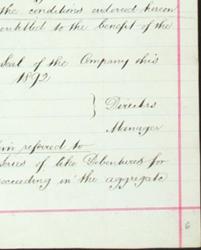 the conditions endorsed hereon
entitled to the benefit of the
Seal of the Company this
1892
Directors
Manager
referred to
Series of like Debentures for
exceeding in the aggregate
6